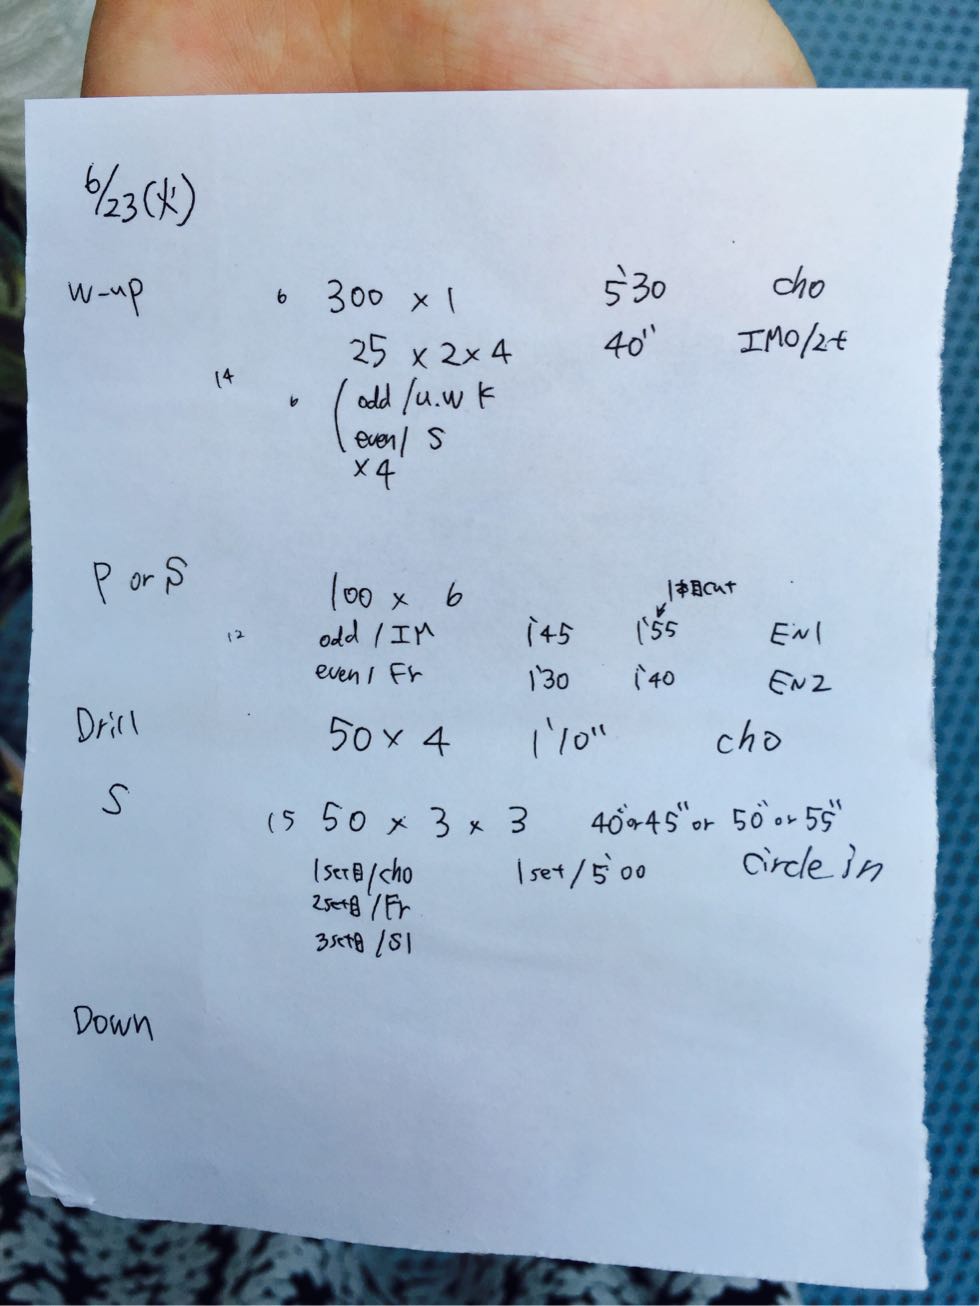 6/23(火)
W-up 6 300 × 1 5'30 cho
25 × 2 × 4 40" IMO/2t
14 6 odd/u.w K
even/ S
× 4
P or S 100 × 6 1本目cut
12 odd/IM 1'45 1'55 EN1
even/ Fr 1'30 1'40 EN2
Drill 50 × 4 1'10" cho
S 15 50 × 3 × 3 40"or45"or 50"or55"
1set目/cho 1set/5'00 circle in
2set目/Fr
3set目/S1
Down